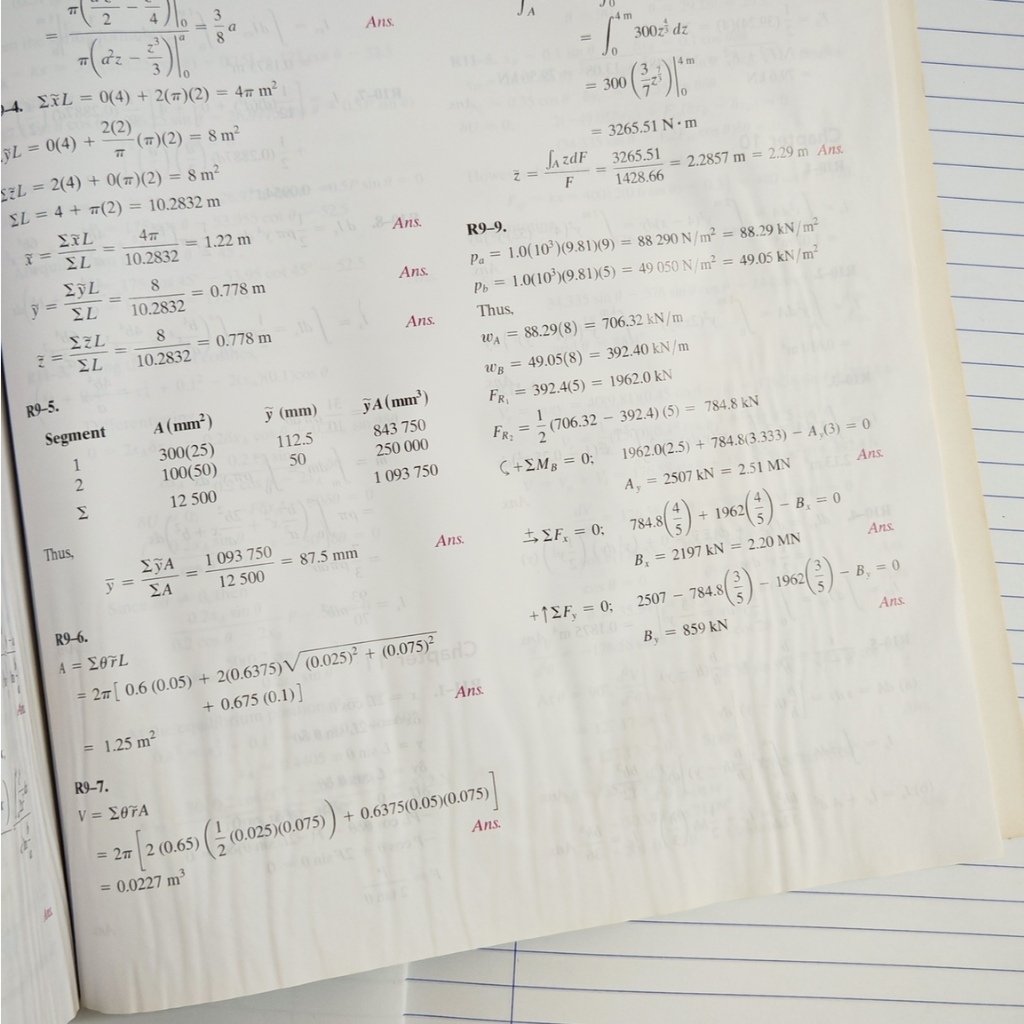 = π(a²z²/2 − z⁴/4)|₀ / π(a²z − z³/3)|₀ᵃ = 3/8 a Ans.
–4. Σx̃L = 0(4) + 2(π)(2) = 4π m²
ỹL = 0(4) + 2(2)/π (π)(2) = 8 m²
Σz̃L = 2(4) + 0(π)(2) = 8 m²
ΣL = 4 + π(2) = 10.2832 m
x̄ = Σx̃L/ΣL = 4π/10.2832 = 1.22 m Ans.
ȳ = ΣỹL/ΣL = 8/10.2832 = 0.778 m Ans.
z̄ = Σz̃L/ΣL = 8/10.2832 = 0.778 m Ans.
R9–5.
Segment A (mm²) ỹ (mm) ỹA (mm³)
1 300(25) 112.5 843 750
2 100(50) 50 250 000
Σ 12 500 1 093 750
Thus,
ȳ = ΣỹA/ΣA = 1 093 750/12 500 = 87.5 mm Ans.
R9–6.
A = Σθr̃L
= 2π[ 0.6 (0.05) + 2(0.6375)√((0.025)² + (0.075)²)
+ 0.675 (0.1)]
= 1.25 m² Ans.
R9–7.
V = Σθr̃A
= 2π[2 (0.65) (1/2 (0.025)(0.075)) + 0.6375(0.05)(0.075)]
= 0.0227 m³ Ans.
∫A
= ∫₀⁴ ᵐ 300z^(4/3) dz
= 300 (3/7 z^(7/3))|₀⁴ ᵐ
= 3265.51 N · m
z̄ = ∫A zdF/F = 3265.51/1428.66 = 2.2857 m = 2.29 m Ans.
R9–9.
pₐ = 1.0(10³)(9.81)(9) = 88 290 N/m² = 88.29 kN/m²
p_b = 1.0(10³)(9.81)(5) = 49 050 N/m² = 49.05 kN/m²
Thus,
w_A = 88.29(8) = 706.32 kN/m
w_B = 49.05(8) = 392.40 kN/m
F_R₁ = 392.4(5) = 1962.0 kN
F_R₂ = 1/2 (706.32 − 392.4) (5) = 784.8 kN
↺+ΣM_B = 0; 1962.0(2.5) + 784.8(3.333) − A_y(3) = 0
A_y = 2507 kN = 2.51 MN Ans.
→+ ΣFₓ = 0; 784.8(4/5) + 1962(4/5) − Bₓ = 0
Bₓ = 2197 kN = 2.20 MN Ans.
+↑ΣF_y = 0; 2507 − 784.8(3/5) − 1962(3/5) − B_y = 0
B_y = 859 kN Ans.